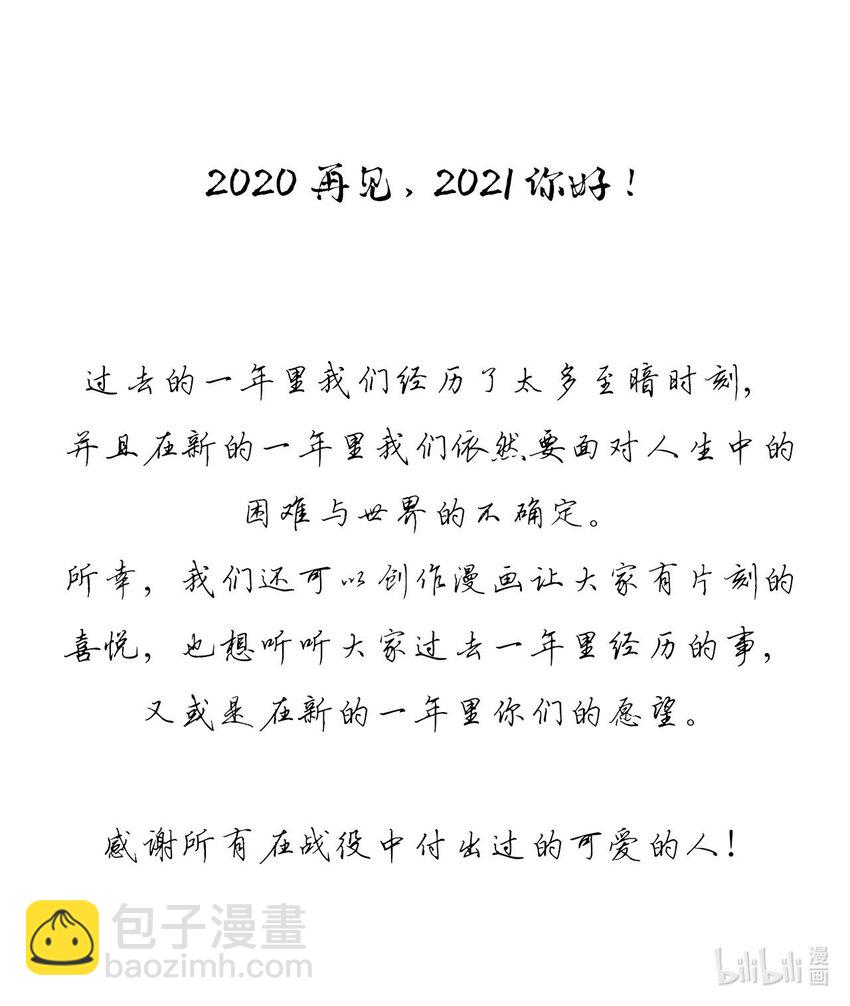 2020再见，2021你好！
过去的一年里我们经历了太多至暗时刻，
并且在新的一年里我们依然要面对人生中的
困难与世界的不确定。
所幸，我们还可以创作漫画让大家有片刻的
喜悦，也想听听大家过去一年里经历的事，
又或是在新的一年里你们的愿望。
感谢所有在战役中付出过的可爱的人！
包子漫畫
baozimh.com
bilibili漫画